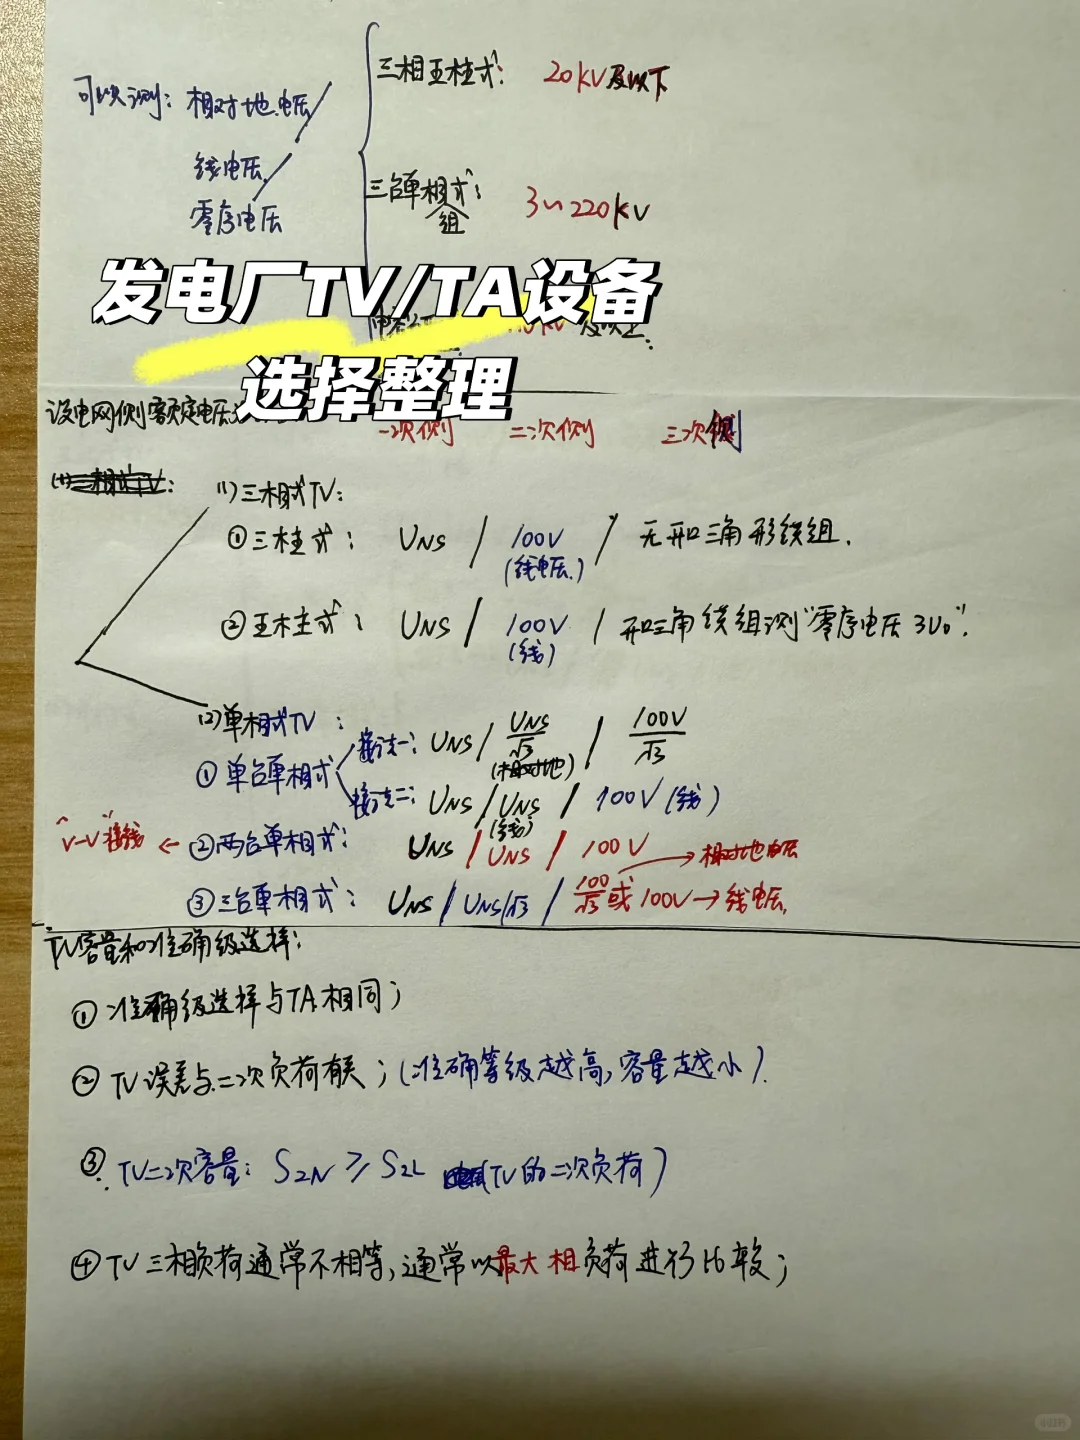 三相五柱式: 20kV及以下
可以测: 相对地电压
线电压
三台单相式: 3~220kV
组
零序电压
发电厂TV/TA设备
及以上.
选择整理
设电网侧额定电压
一次侧 二次侧 三次侧
(1)三相式TV:
(1)三相式TV:
①三柱式: UNS / 100V / 无开口三角形绕组.
(线电压.)
②五柱式: UNS / 100V / 开口三角绕组测"零序电压3U0".
(线)
(2)单相式TV:
①单台单相式 接法一: UNS / UNS/√3 / 100V/√3
(相对地)
接法二: UNS / UNS / 100V (线)
(线)
"V-V"接线 ← ②两台单相式: UNS / UNS / 100V
→ 相对地电压
③三台单相式: UNS / UNS/√3 / 100/√3 或 100V → 线电压.
TV容量和准确级选择:
①准确级选择与TA相同;
②TV误差与二次负荷有关; (准确等级越高,容量越小).
③TV二次容量: S2N ≥ S2L (TV的二次负荷)
④TV三相负荷通常不相等,通常以最大相负荷进行比较;
小红书